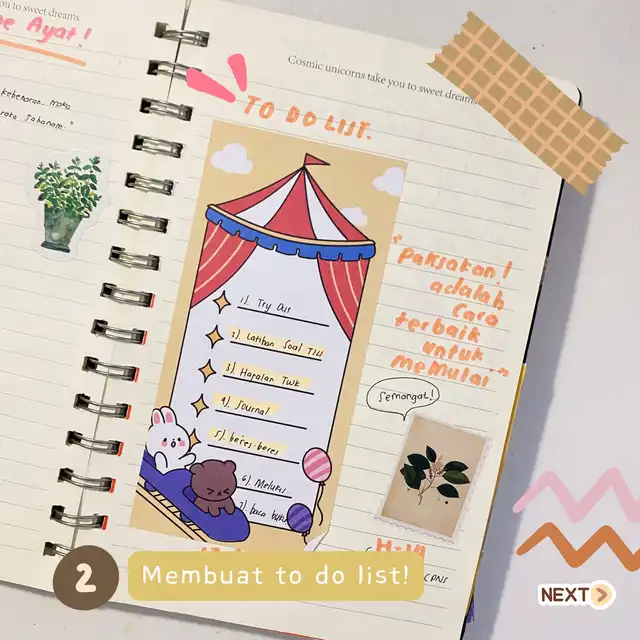 you to sweet dreams
Ayat!
kebenaran maka
Cosmic unicorns take you to sweet dreams
TO DO LIST.
1). Try Out
2). Latihan Soal TIU
3). Hapalan TWK
4). Journal
5). beres-beres
6). Melukis
7). baca buku
"Paksakan!
adalah
cara
terbaik
untuk
memulai"
Semangat!
CPNS
2
Membuat to do list!
NEXT